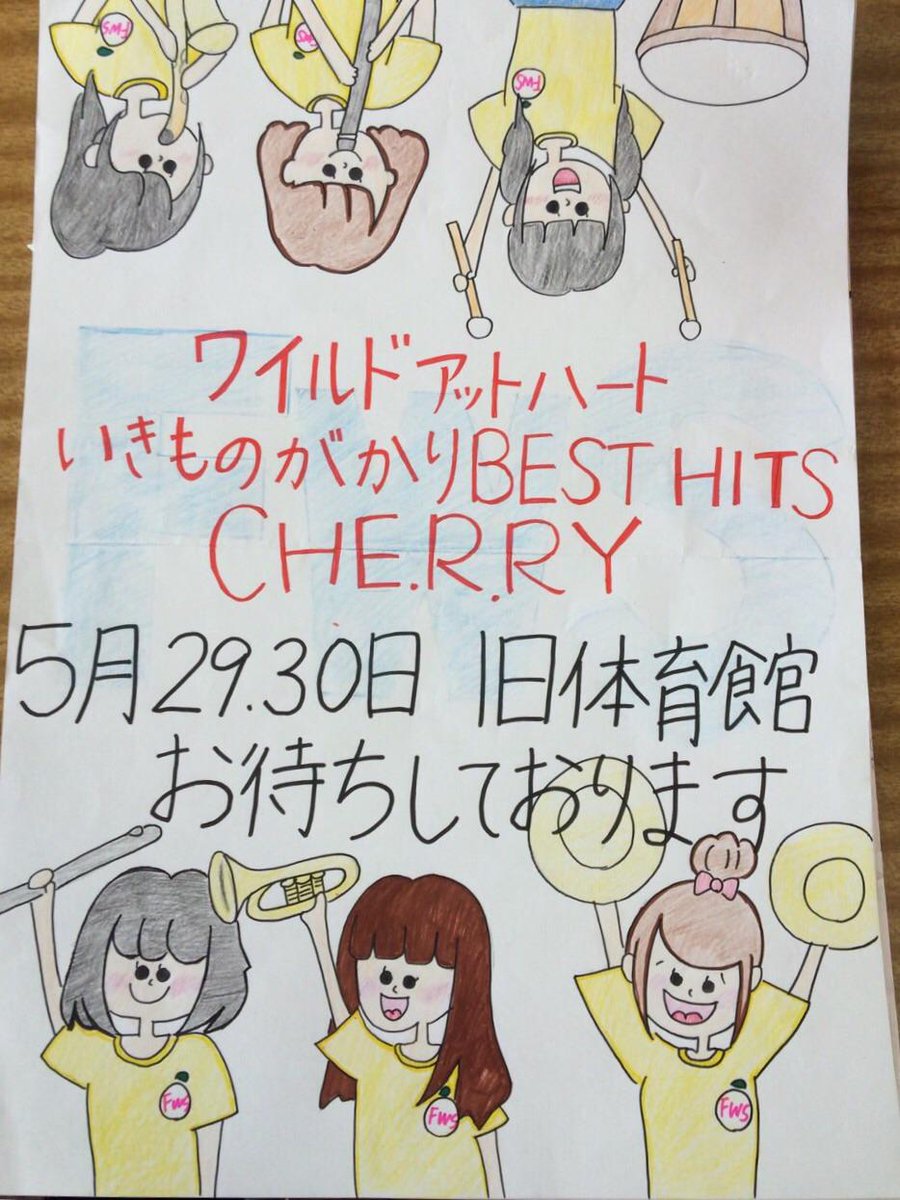 FWS
FWS
FWS
ワイルドアットハート
いきものがかりBEST HITS
CHE.R.RY
5月29.30日 旧体育館
お待ちしております
FWS
FWS
FWS